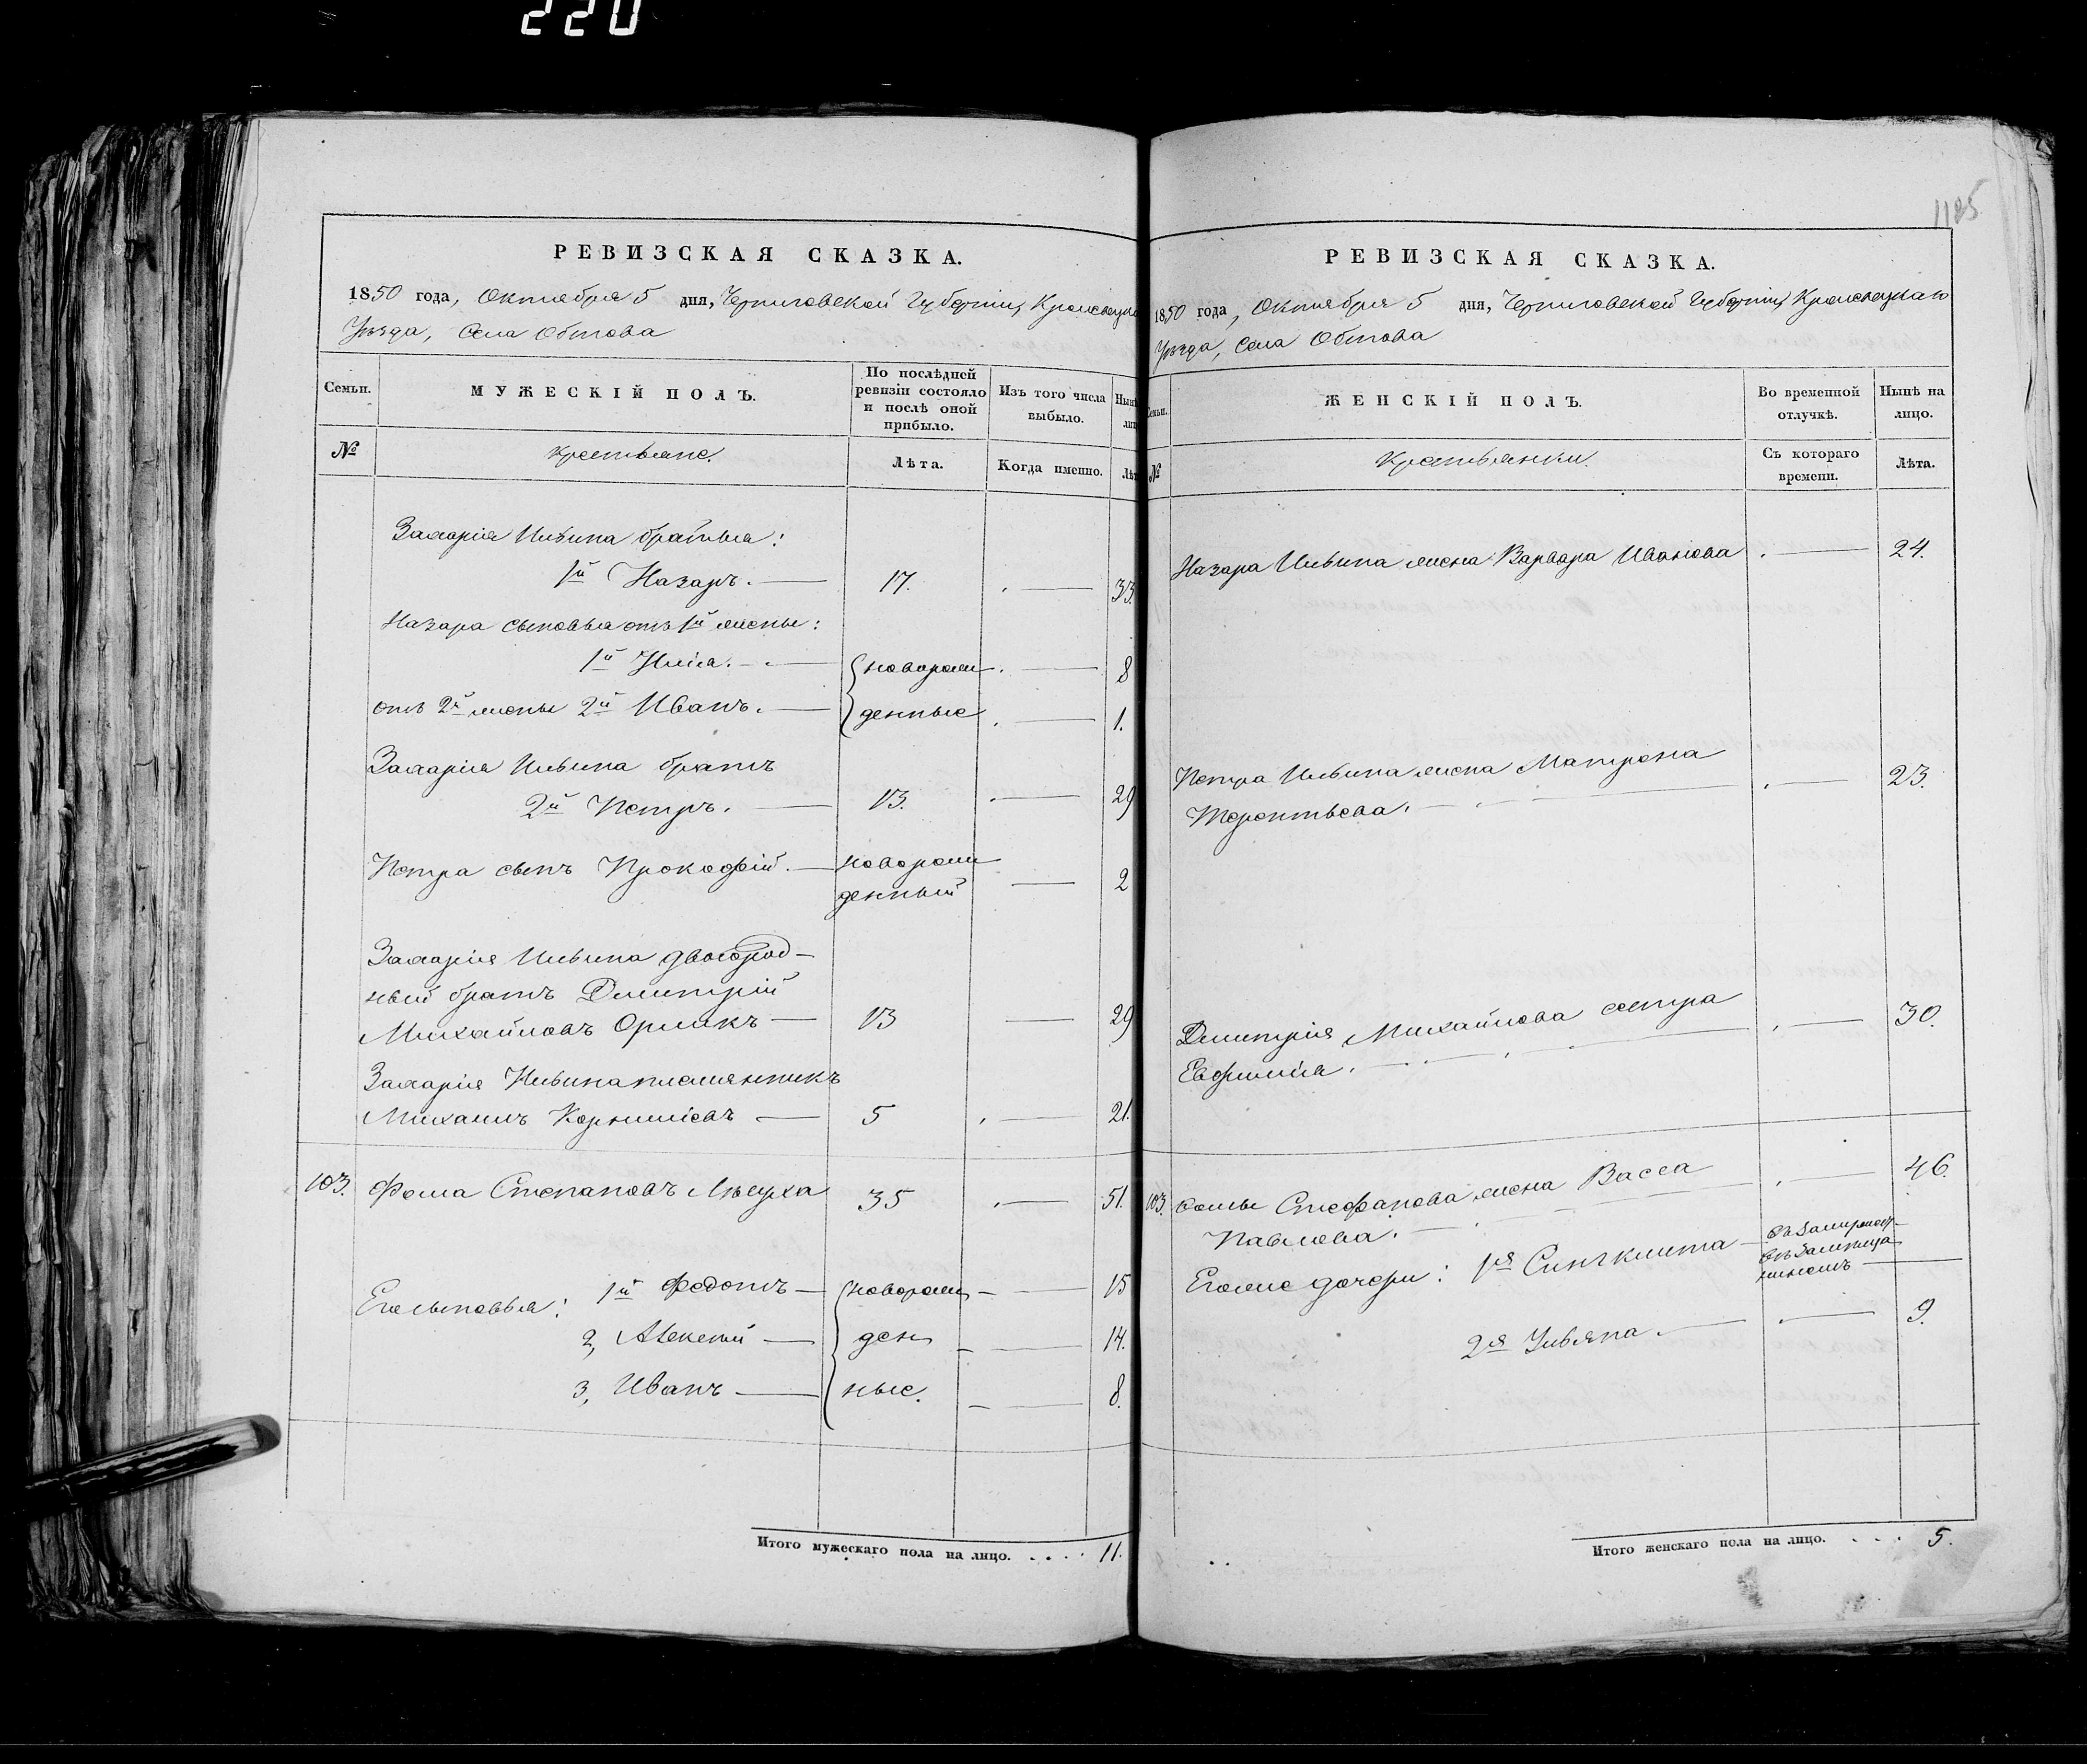 220
1125
РЕВИЗСКАЯ СКАЗКА.
1850 года, Октября 5 дня, Черниговской Губерніи, Кролевецка
Уѣзда, Села Обтова
Семьи.
МУЖЕСКІЙ ПОЛЪ.
По послѣдней ревизіи состояло и послѣ оной прибыло.
Изъ того числа выбыло.
Нынѣ
№
Крестьяне.
Лѣта.
Когда именно.
Захарія Ильина братья:
1й Назаръ. — 17. — 33.
Назара сыновья отъ 1й жены:
1й Илія. — новорож — 8
отъ 2й жены 2й Иванъ. — денные — 1.
Захарія Ильина братъ
2й Петръ. — 13. — 29
Петра сынъ Прокофій. — новорож
денный — 2
Захарія Ильина двоюрод-
ный братъ Димитрій
Михайловъ Орликъ — 13 — 29
Захарія Ильина племянникъ
Михаилъ Корниліевъ — 5 — 21.
103. Фома Степановъ — 35 — 51.
Его сыновья: 1й Федотъ — новорож — 15
2, Алексѣй — ден — 14.
3, Иванъ — ные. — 8.
Итого мужескаго пола на лицо. . . . . 11.
РЕВИЗСКАЯ СКАЗКА.
1850 года, Октября 5 дня, Черниговской Губерніи, Кролевецкаго
Уѣзда, Села Обтова
Семьи.
ЖЕНСКІЙ ПОЛЪ.
Во временной отлучкѣ.
Нынѣ на лицо.
№
Крестьянки.
Съ котораго времени.
Лѣта.
Назара Ильина жена Варвара Иванова — 24.
Петра Ильина жена Матрона
Терентьева. — 23.
Димитрія Михайлова сестра
Евфимія. — 30.
103. Фомы Стефанова жена Васса
Павлова. — 46.
Его же дочери: 1я Синклита —
2я Ульяна — 9.
Итого женскаго пола на лицо. . . . 5.